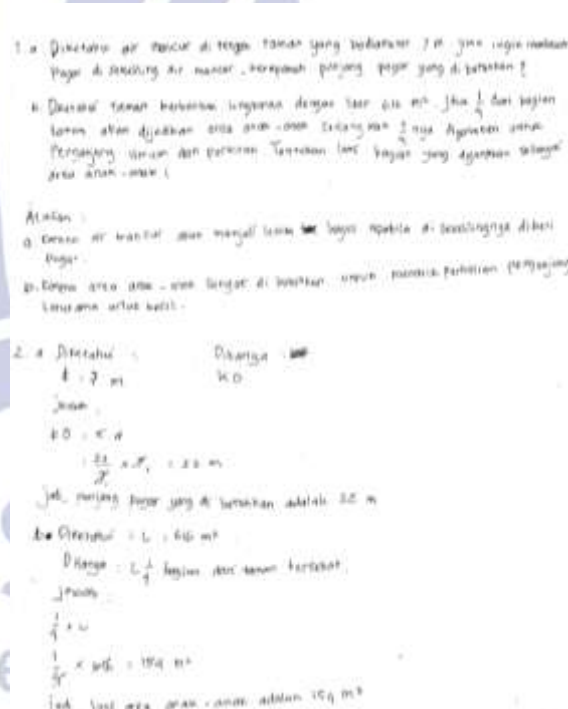 1. a Diketahui air mancur di tengah taman yang berdiameter 7 m jika ingin membuat
Pagar di sekeliling air mancur. berapakah panjang pagar yang di butuhkan ?
b. Diketahui taman berbentuk lingkaran dengan luas 616 m². Jika 1/4 dari bagian
taman akan dijadikan area anak-anak sedangkan nya digunakan untuk
Pengunjung umum dan parkiran Tentukan luas bagian yang digunakan sebagai
area anak-anak !
Alasan :
a. Karena air mancur akan menjadi lebih bagus apabila di sekelilingnya diberi
Pagar.
b. Karena area anak-anak sangat di butuhkan untuk perhatian pengunjung
terutama untuk
2. a Diketahui : Ditanya :
d = 7 m KO
Jawab
KO = π d
= 22/7 × 7 = 22 m
Jadi, panjang pagar yang di butuhkan adalah 22 m
b. Diketahui : L = 616 m²
Ditanya : L 1/4 bagian dari taman tersebut.
Jawab
1/4 × L
1/4 × 616 = 154 m²
Jadi luas area anak-anak adalah 154 m²